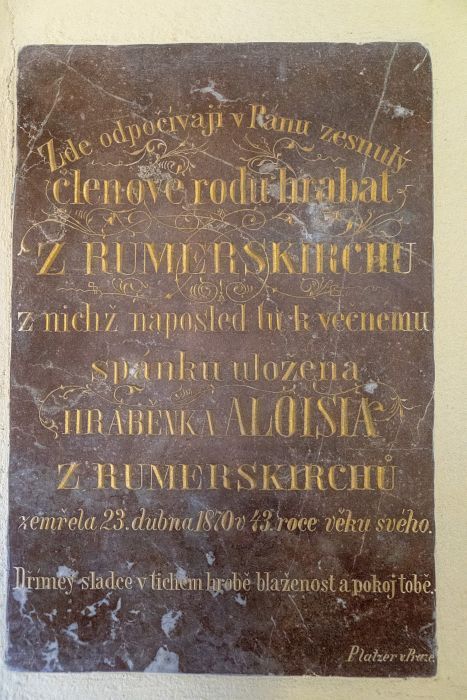 Zde odpočívají v Pánu zesnulý
členové rodu hrabat
Z RUMERSKIRCHŮ
z nichž naposled tu k věčnemu
spánku uložena
HRABĚNKA ALOISIA
Z RUMERSKIRCHŮ
zemřela 23. dubna 1870 v 43. roce věku svého.
Dřímey sladce v tichem hrobě blaženost a pokoj tobě.
Platzer v Praze.